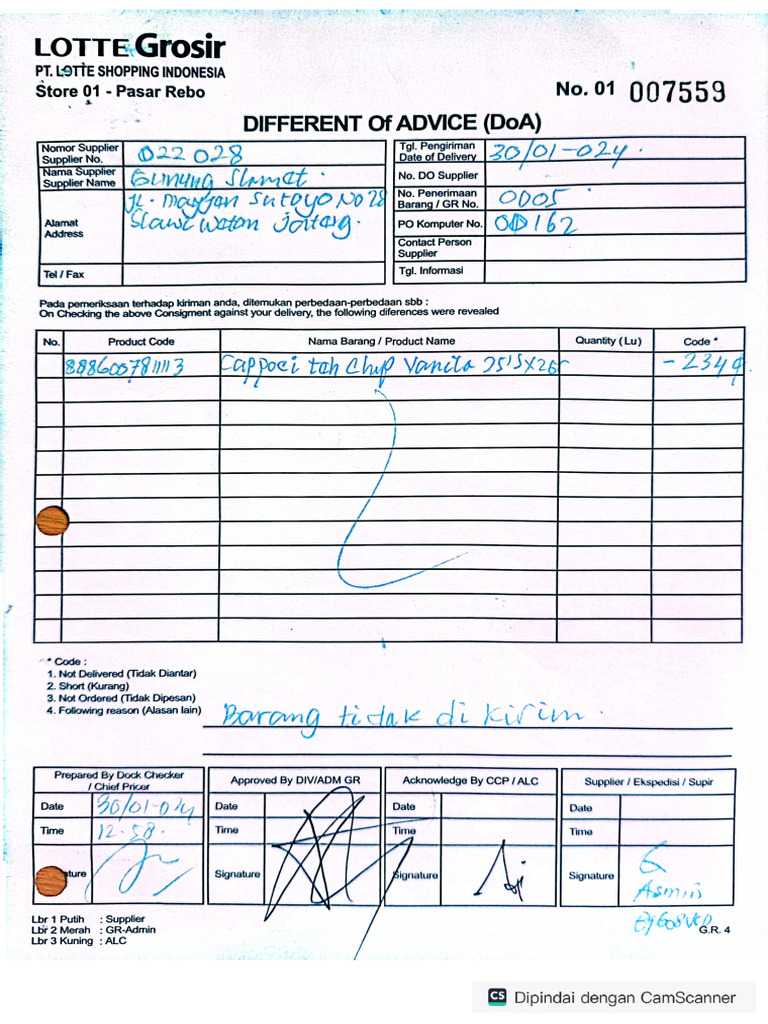 LOTTE Grosir
PT. LOTTE SHOPPING INDONESIA
Store 01 - Pasar Rebo
No. 01 007559
DIFFERENT Of ADVICE (DoA)
Nomor Supplier
Supplier No.
022028
Nama Supplier
Supplier Name
Gunung Slamat.
Alamat
Address
JL. Mayjan Sutoyo No 28
Slawi Waton Jateng.
Tel / Fax
Tgl. Pengiriman
Date of Delivery
30/01-024.
No. DO Supplier
No. Penerimaan
Barang / GR No.
0005
PO Komputer No.
00162
Contact Person
Supplier
Tgl. Informasi
Pada pemeriksaan terhadap kiriman anda, ditemukan perbedaan-perbedaan sbb :
On Checking the above Consigment against your delivery, the following diferences were revealed
No. Product Code Nama Barang / Product Name Quantity (Lu) Code *
8886007811113 Cappoci teh Chup Vanila 25'SX26r - 234
* Code :
1. Not Delivered (Tidak Diantar)
2. Short (Kurang)
3. Not Ordered (Tidak Dipesan)
4. Following reason (Alasan lain)
Barang tidak di kirim.
Prepared By Dock Checker
/ Chief Pricer
Date 30/01-024
Time 12.58
ature
Approved By DIV/ADM GR
Date
Time
Signature
Acknowledge By CCP / ALC
Date
Time
Signature
Supplier / Ekspedisi / Supir
Date
Time
Signature
Asmin
Lbr 1 Putih : Supplier
Lbr 2 Merah : GR-Admin
Lbr 3 Kuning : ALC
G.R. 4
CS Dipindai dengan CamScanner